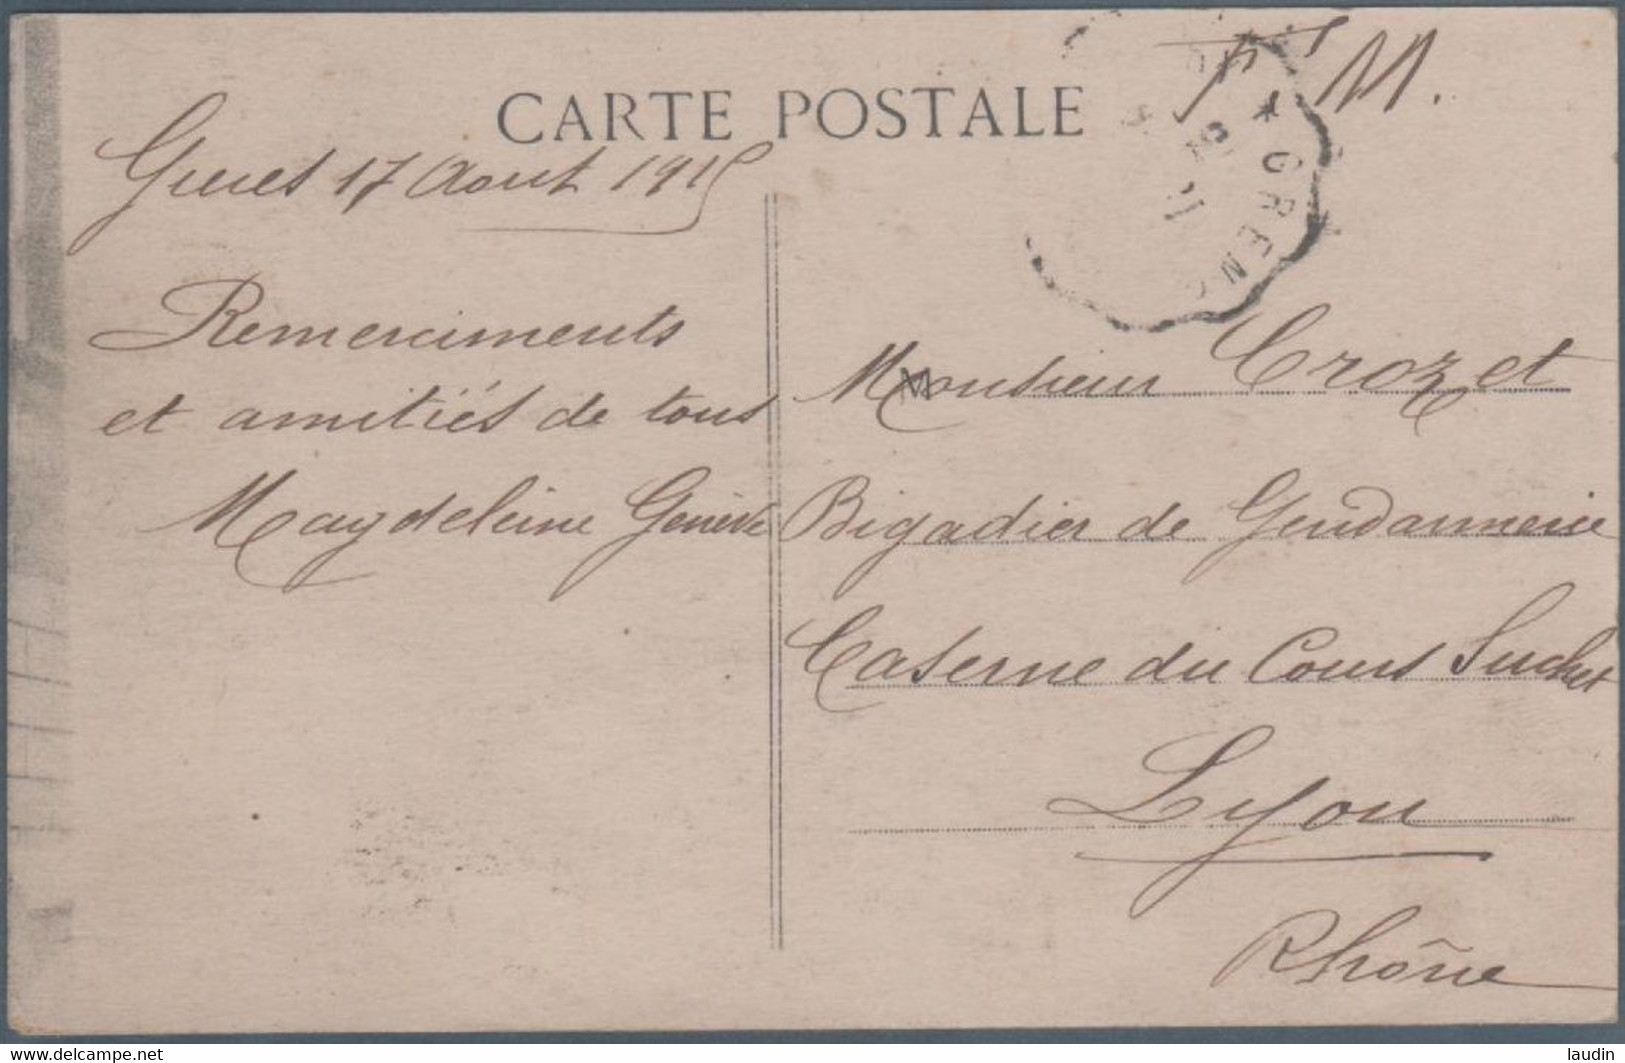 CARTE POSTALE
F M.
* GRENO
17 Aout 1915
Remerciments
et amitiés de tous
Magdeleine Genève
Monsieur Crozet
Bigadier de Gendarmerie
Caserne du Cours Suchet
Lyon
Rhône
www.delcampe.net
laudin